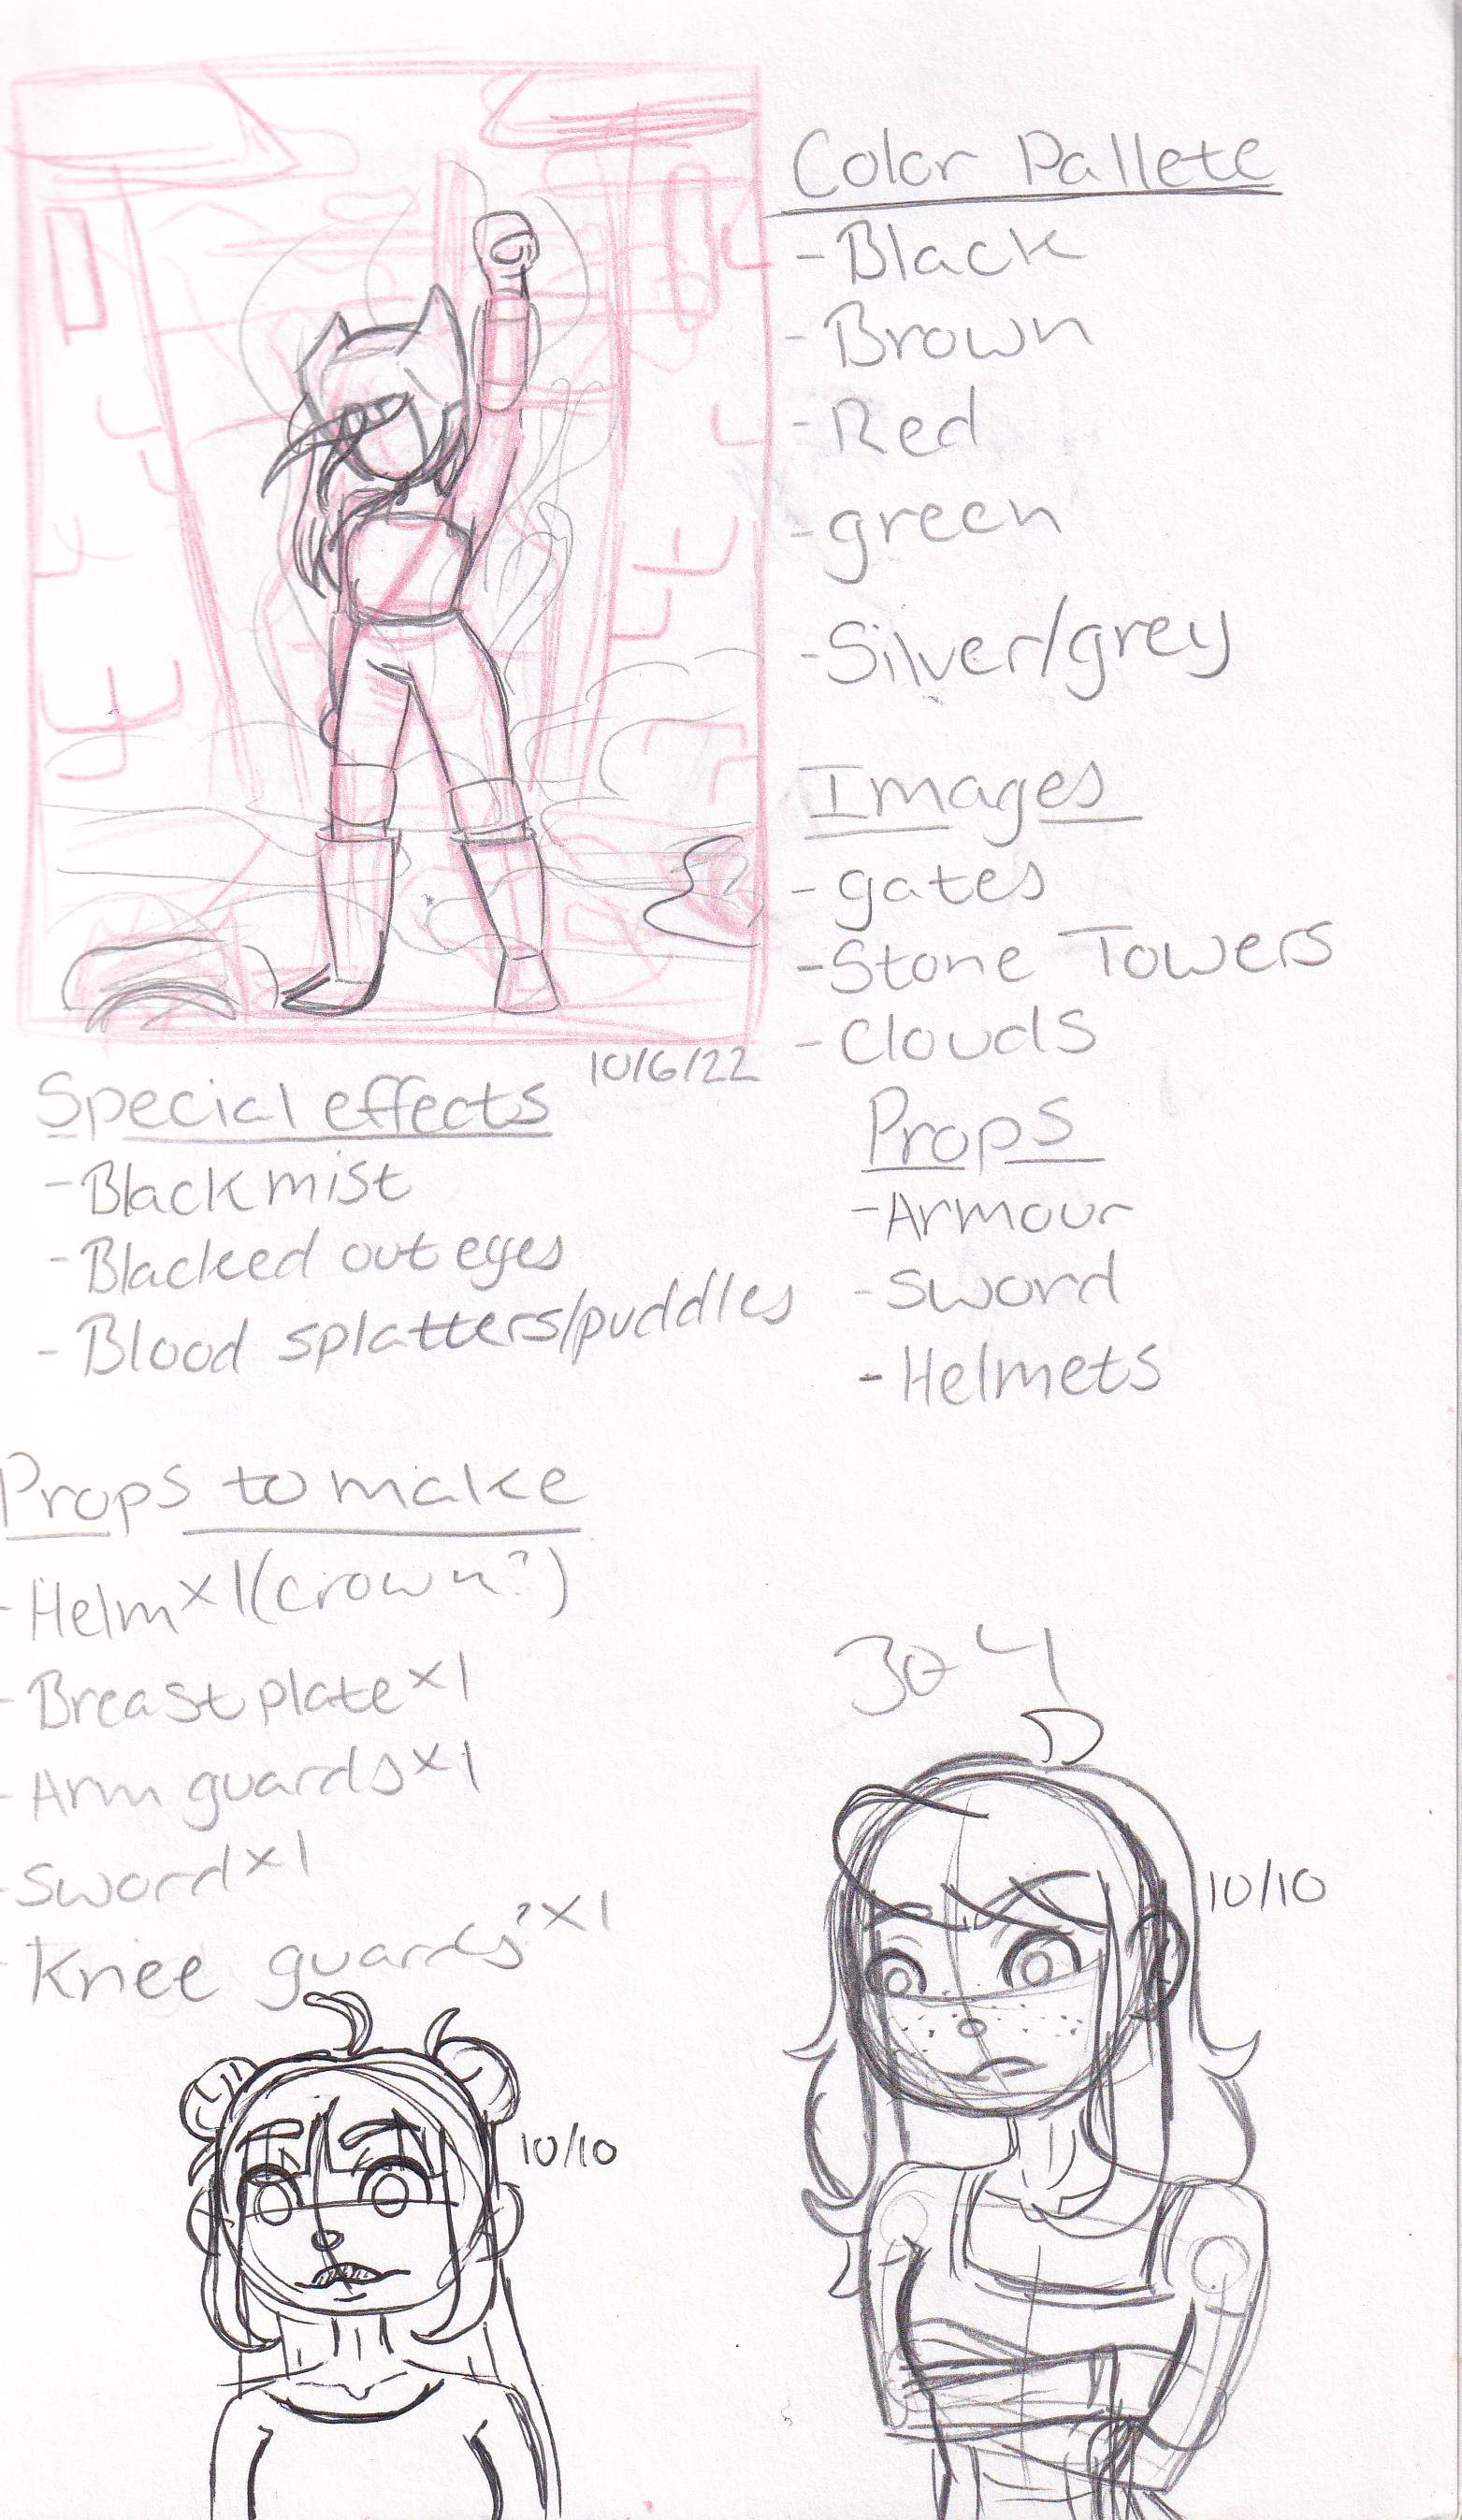 Color Pallete
-Black
-Brown
-Red
-green
-Silver/grey
Images
-gates
-Stone Towers
-Clouds
Props
-Armour
-Sword
-Helmets
10/6/22
Special effects
-Black mist
-Blacked out eyes
-Blood splatters/puddles
Props to make
-Helm x1(crown?)
-Breastplate x1
-Arm guards x1
-Sword x1
-Knee guards? x1
10/10
10/10